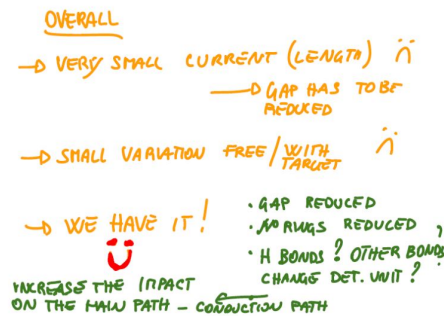 OVERALL
→ VERY SMALL CURRENT (LENGTH)
→ GAP HAS TO BE
REDUCED
→ SMALL VARIATION FREE/WITH
TARGET
→ WE HAVE IT!
• GAP REDUCED
• NO RINGS REDUCED,
• H BONDS? OTHER BONDS
CHANGE DET. UNIT?
INCREASE THE IMPACT
ON THE MAIN PATH – CONDUCTION PATH